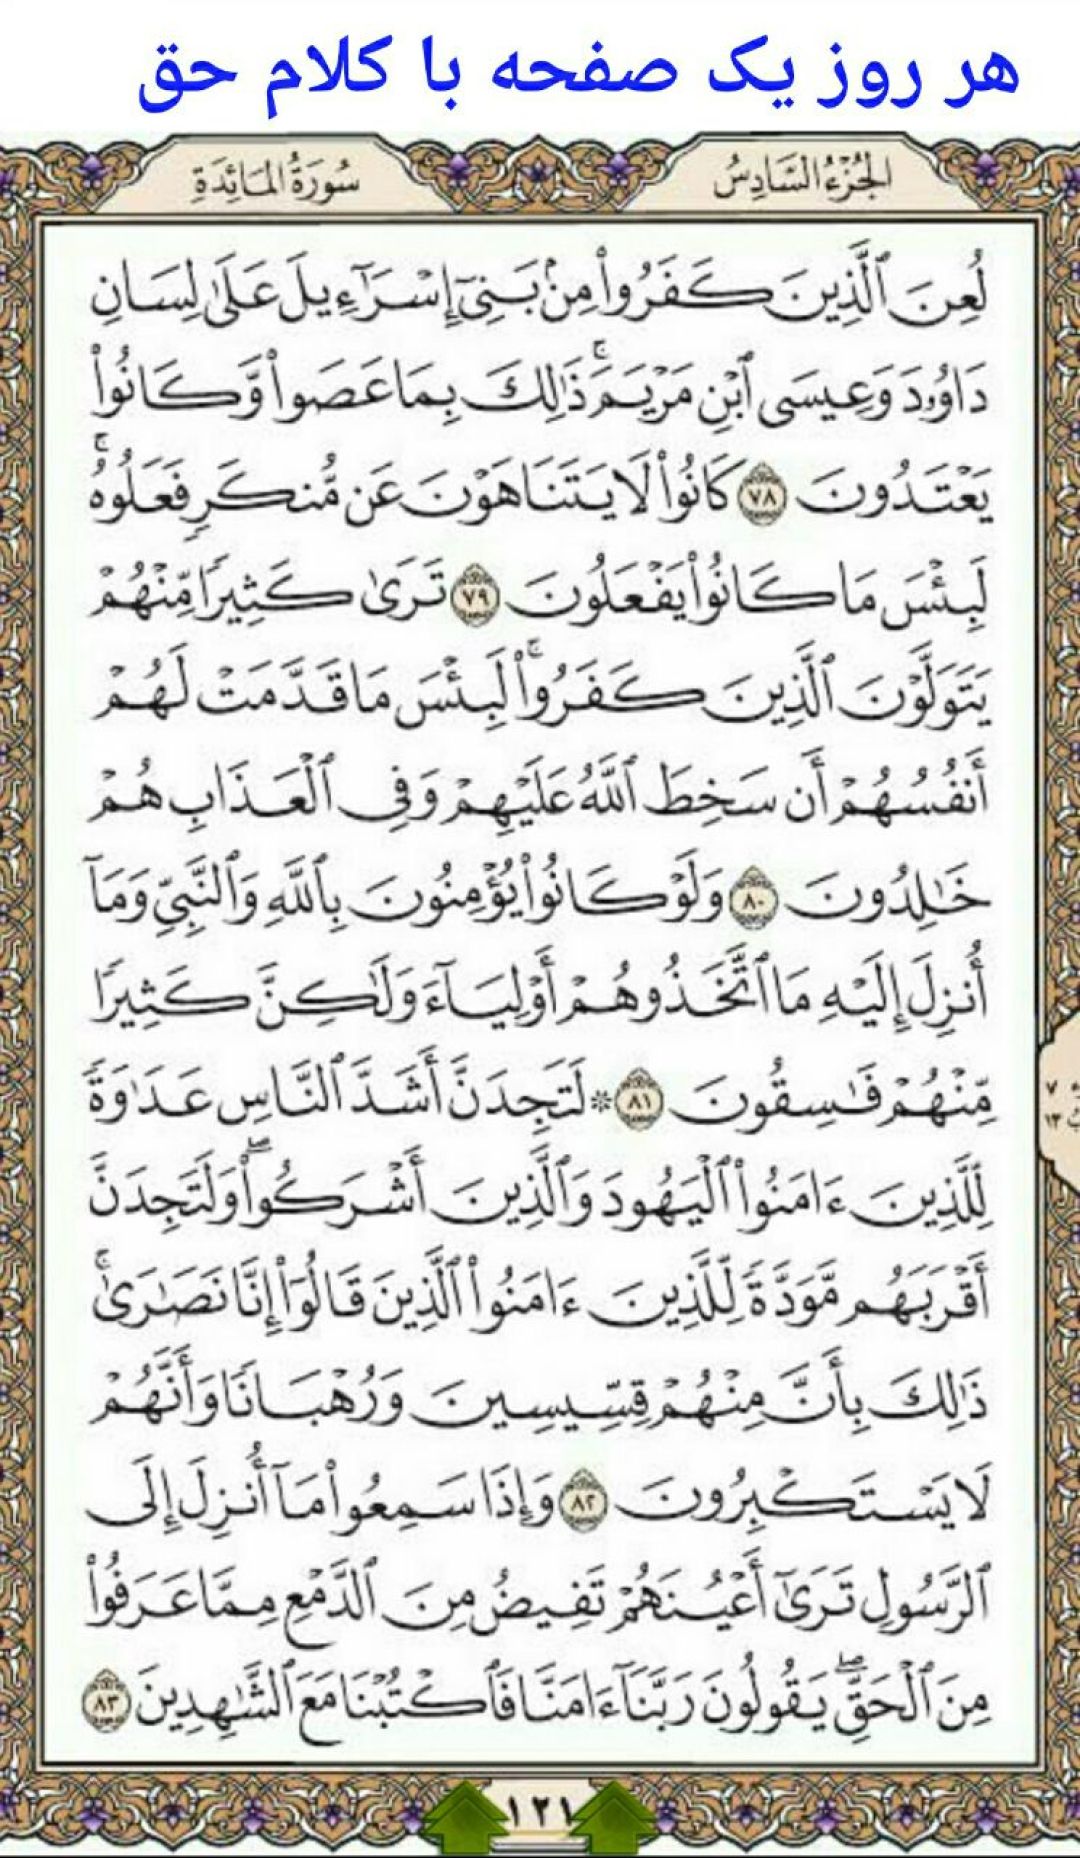 هر روز یک صفحه با کلام حق
الجُزْءُ السَّادِسُ
سُورَةُ المَائِدَةِ
لُعِنَ ٱلَّذِينَ كَفَرُواْ مِنۢ بَنِيٓ إِسۡرَٰٓءِيلَ عَلَىٰ لِسَانِ
دَاوُۥدَ وَعِيسَى ٱبۡنِ مَرۡيَمَۚ ذَٰلِكَ بِمَا عَصَواْ وَّكَانُواْ
يَعۡتَدُونَ ٧٨ كَانُواْ لَا يَتَنَاهَوۡنَ عَن مُّنكَرٖ فَعَلُوهُۚ
لَبِئۡسَ مَا كَانُواْ يَفۡعَلُونَ ٧٩ تَرَىٰ كَثِيرٗا مِّنۡهُمۡ
يَتَوَلَّوۡنَ ٱلَّذِينَ كَفَرُواْۚ لَبِئۡسَ مَا قَدَّمَتۡ لَهُمۡ
أَنفُسُهُمۡ أَن سَخِطَ ٱللَّهُ عَلَيۡهِمۡ وَفِي ٱلۡعَذَابِ هُمۡ
خَٰلِدُونَ ٨٠ وَلَوۡ كَانُواْ يُؤۡمِنُونَ بِٱللَّهِ وَٱلنَّبِيِّ وَمَآ
أُنزِلَ إِلَيۡهِ مَا ٱتَّخَذُوهُمۡ أَوۡلِيَآءَ وَلَٰكِنَّ كَثِيرٗا
مِّنۡهُمۡ فَٰسِقُونَ ٨١ ۞ لَتَجِدَنَّ أَشَدَّ ٱلنَّاسِ عَدَٰوَةٗ
لِّلَّذِينَ ءَامَنُواْ ٱلۡيَهُودَ وَٱلَّذِينَ أَشۡرَكُواْۖ وَلَتَجِدَنَّ
أَقۡرَبَهُم مَّوَدَّةٗ لِّلَّذِينَ ءَامَنُواْ ٱلَّذِينَ قَالُوٓاْ إِنَّا نَصَٰرَىٰۚ
ذَٰلِكَ بِأَنَّ مِنۡهُمۡ قِسِّيسِينَ وَرُهۡبَانٗا وَأَنَّهُمۡ
لَا يَسۡتَكۡبِرُونَ ٨٢ وَإِذَا سَمِعُواْ مَآ أُنزِلَ إِلَى
ٱلرَّسُولِ تَرَىٰٓ أَعۡيُنَهُمۡ تَفِيضُ مِنَ ٱلدَّمۡعِ مِمَّا عَرَفُواْ
مِنَ ٱلۡحَقِّۖ يَقُولُونَ رَبَّنَآ ءَامَنَّا فَٱكۡتُبۡنَا مَعَ ٱلشَّٰهِدِينَ ٨٣
١٢١